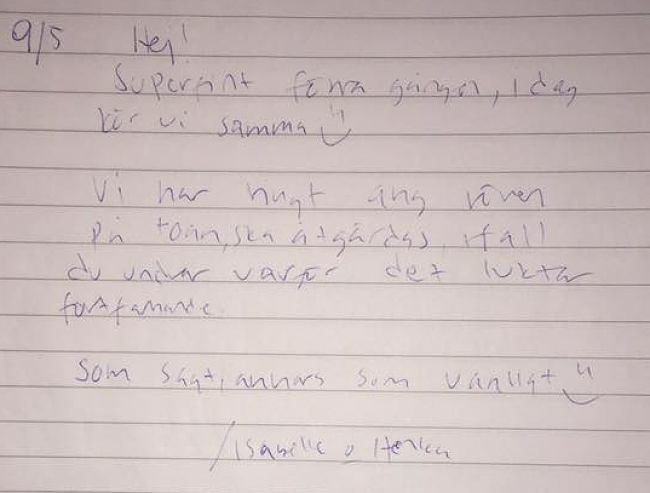 9/5 Hej!
Superfint förra gången, idag
kör vi samma
Vi har ringt ang rören
på toan, ska åtgärdas, ifall
du undrar varför det luktar
fortfarande.
Som sagt, annars som vanligt
/Isabelle o Henke